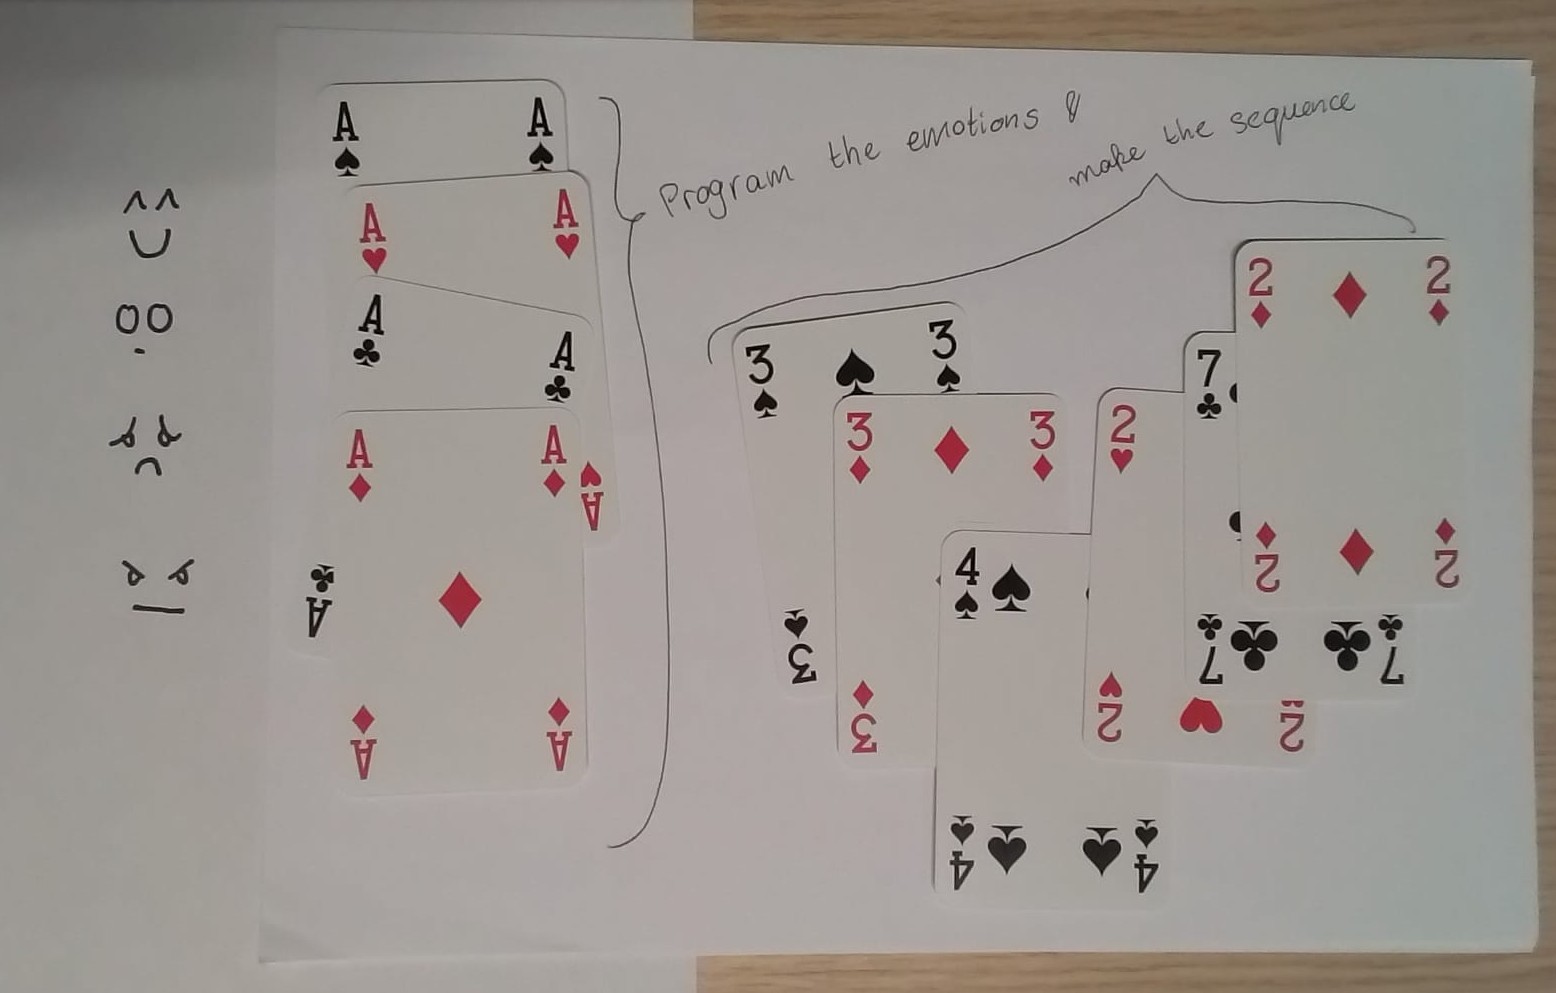 Program the emotions &
make the sequence
A A
A A
A A
A A
A
A
A A
3 3
3
3 3
3
4
4 4
2
2 2
7
7 7
2 2
2 2